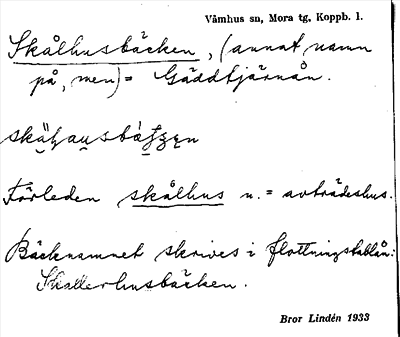 Våmhus sn, Mora tg, Koppb. l.
Skålhusbäcken, (annat namn
på, men) = Gäddtjärnån.
Förleden skålhus n. = avträdeshus.
Bäcknamnet skrives i flottningstablån:
Skallerhusbäcken.
Bror Lindén 1933